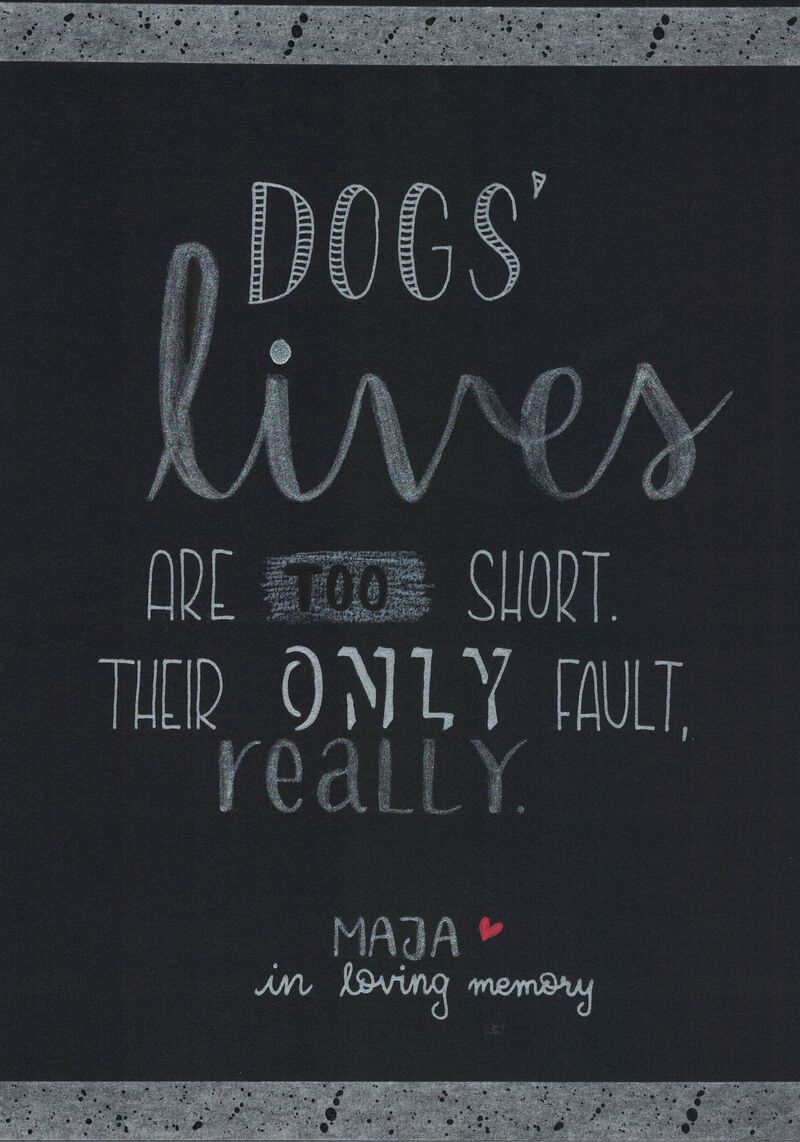 DOGS'
lives
ARE TOO SHORT.
THEIR ONLY FAULT,
reaLLY.
MAJA
in loving memory